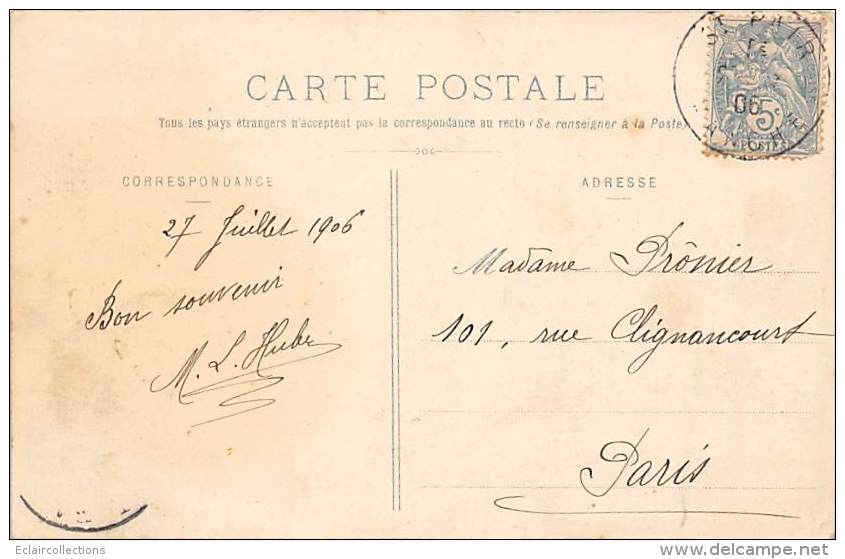 CARTE POSTALE
Tous les pays étrangers n'acceptent pas la correspondance au recto (Se renseigner à la Poste)
CORRESPONDANCE
27 Juillet 1906
Bon souvenir
M. L. Hube
ADRESSE
Madame Prônier
101, rue Clignancourt
Paris
ST PAIR
06
5
POSTES
MANCHE
Eclaircollections
www.delcampe.net